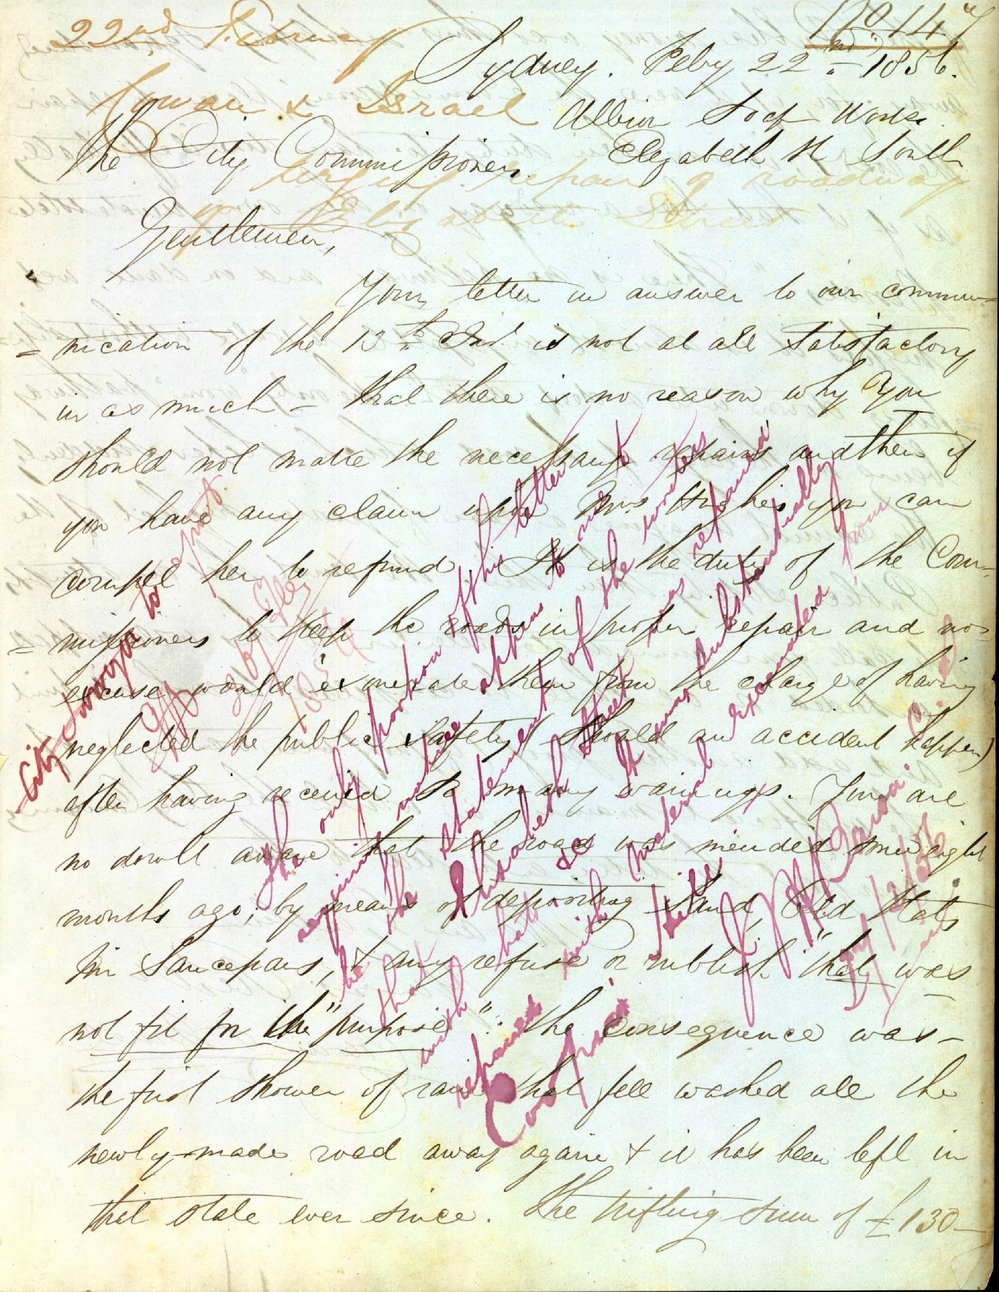 22nd February
No 147
Cowan & Israel
urging repair of roadway
of Elizabeth Street
Sydney. Feby 22nd 1856.
Albion Works
Elizabeth St South
The City Commissioners
Gentlemen,
Your letter in answer to our commu=
=nication of the 13th Inst. is not at all satisfactory
in as much - that there is no reason why You
should not make the necessary repairs and then if
you have any claim upon Mrs Hughes you can
compel her to refund. It is the duty of the Com-
=missioners to keep the roads in proper repair and no
excuse would exonerate them from the charge of having
neglected the public safety (should an accident happen)
after having received so many warnings. You are
no doubt aware that the road was mended some eight
months ago, by means of depositing Sand, Old Hats
Tin Saucepans, & any refuse or rubbish "that was
not fit for the "purpose" the consequence was -
the first shower of rain that fell washed all the
newly-made road away again & it has been left in
that state ever since. The trifling sum of £130-
City Surveyor to report.
23 Feby
1856
The only portion of this letter
requiring notice appears to me to
be the statement of the writers
that Elizabeth Street was repaired
with
repaired with material excavated from